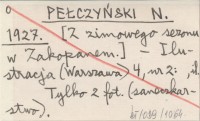 PEŁCZYŃSKI N.
1927. [Z zimowego sezonu
w Zakopanem.] – Ilu-
stracja (Warszawa) 4, nr 2: il.
Tylko 2 fot. (saneczkar-
stwo).